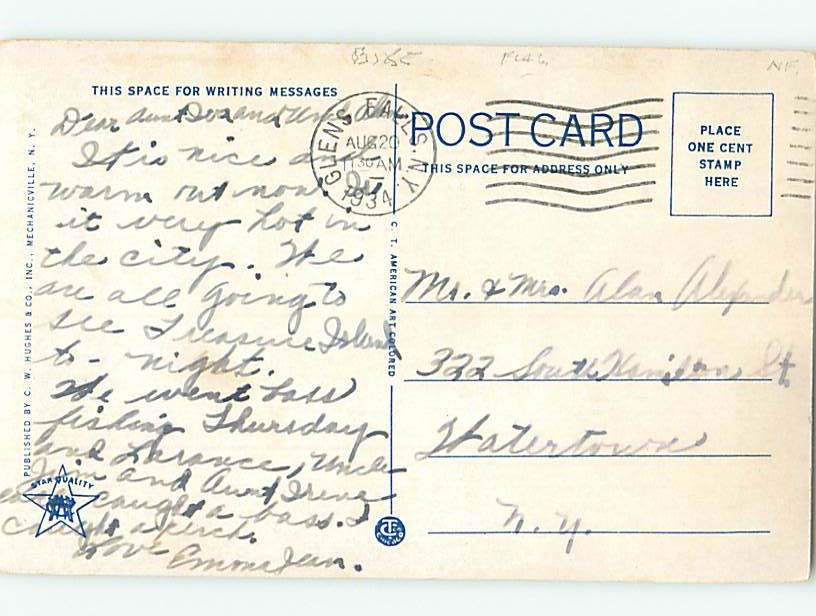 B165
FLAG
NF
THIS SPACE FOR WRITING MESSAGES
Dear Aunt Dot and Uncle
It is nice and
warm out now. Is
it very hot in
the city. We
are all going to
see Treasure Island
to-night.
We went bass
fishing Thursday
and Larance, Uncle
Jim and Aunt Irene
each caught a bass. I
caught a perch.
Love
Emona Jean.
PUBLISHED BY C. W. HUGHES & CO., INC., MECHANICVILLE, N. Y.
STAR QUALITY
C. T. AMERICAN ART COLORED
CHICAGO
GLENS FALLS N.Y.
AUG 20
130 AM
1934
POST CARD
THIS SPACE FOR ADDRESS ONLY
PLACE
ONE CENT
STAMP
HERE
Mr. & Mrs. Alan Alexander
322 South Hamilton St.
Watertown
N. Y.